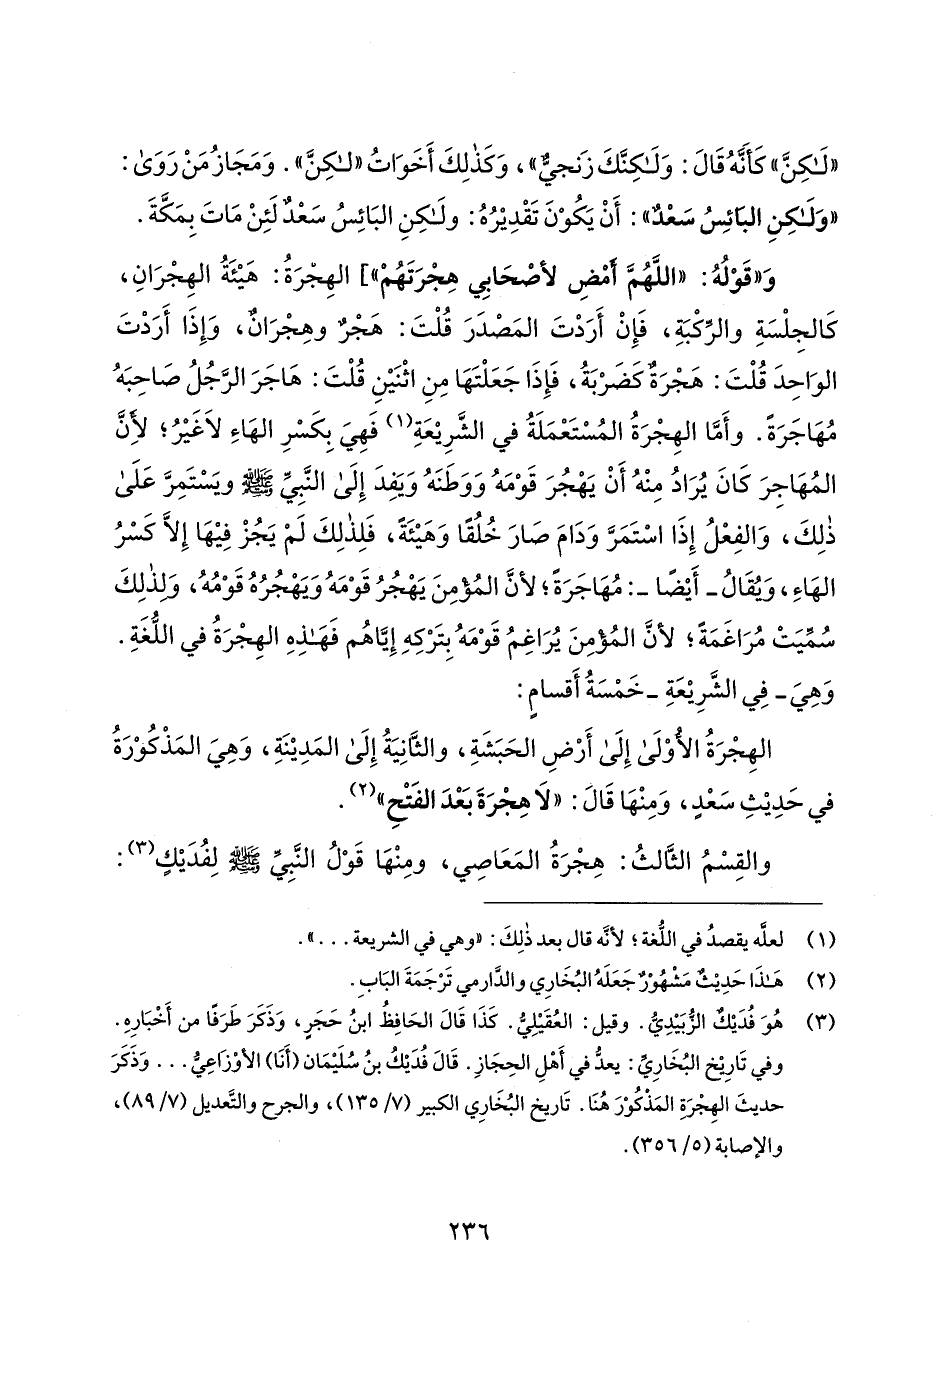 «لَـٰكِنَّ» كَأَنَّهُ قَالَ: وَلَـٰكِنَّكَ زَنجيٌّ»، وَكَذٰلِكَ أَخَوَاتُ «لـٰكِنَّ». وَمَجَازُ مَنْ رَوَىٰ:
«وَلَـٰكِنِ البَائِسُ سَعْدٌ»: أَنْ يَكُوْنَ تَقْدِيْرُهُ: ولَـٰكِنِ البَائِسُ سَعْدٌ لَئِنْ مَاتَ بِمَكَّةَ.
وَ«قَوْلُهُ: «اللَّهُمَّ أَمْضِ لأصْحَابِي هِجْرَتَهُمْ»] الهِجْرَةُ: هَيْئَةُ الهِجْرَانِ،
كَالجِلْسَةِ والرِّكْبَةِ، فَإِنْ أَرَدْتَ المَصْدَرَ قُلْتَ: هَجْرٌ وهِجْرَانٌ، وَإِذَا أَرَدْتَ
الوَاحِدَ قُلْتَ: هَجْرَةٌ كَضَرْبَةُ، فَإِذَا جَعَلْتَهَا مِنِ اثْنَيْنِ قُلْتَ: هَاجَرَ الرَّجُلُ صَاحِبَهُ
مُهَاجَرَةً. وأَمَّا الهِجْرَةُ المُسْتَعْمَلَةُ في الشَّرِيْعَةِ(١) فَهِيَ بِكَسْرِ الهَاءِ لاَغَيْرُ؛ لأَنَّ
المُهَاجِرَ كَانَ يُرَادُ مِنْهُ أَنْ يَهْجُرَ قَوْمَهُ وَوَطَنَهُ وَيَفِدَ إِلَىٰ النَّبِيِّ ﷺ ويَسْتَمِرَّ عَلَىٰ
ذٰلِكَ، وَالفِعْلُ إِذَا اسْتَمَرَّ وَدَامَ صَارَ خُلُقًا وَهَيْئَةً، فَلِذٰلِكَ لَمْ يَجُزْ فِيْهَا إِلاَّ كَسْرُ
الهَاءِ، وَيُقَالُ ـ أَيْضًا ـ: مُهَاجَرَةً؛ لأنَّ المُؤْمِنَ يَهْجُرُ قَوْمَهُ وَيَهْجُرُهُ قَوْمُهُ، وَلِذٰلِكَ
سُمِّيَتْ مُرَاغَمَةً؛ لأنَّ المُؤْمِنَ يُرَاغِمُ قَوْمَهُ بِتَرْكِهِ إِيَّاهُم فَهَـٰذِهِ الهِجْرَةُ في اللُّغَةِ.
وَهِيَ ـ فِي الشَّرِيْعَةِ ـ خَمْسَةُ أَقسامٍ:
الهِجْرَةُ الأُوْلَىٰ إِلَىٰ أَرْضِ الحَبَشَةِ، والثَّانِيَةُ إِلَىٰ المَدِيْنَةِ، وَهِيَ المَذْكُوْرَةُ
في حَدِيْثِ سَعْدٍ، وَمِنْهَا قَالَ: «لَا هِجْرَةَ بَعْدَ الفَتْحِ»(٢).
والقِسْمُ الثَّالثُ: هِجْرَةُ المَعَاصِي، ومِنْهَا قَوْلُ النَّبِيِّ ﷺ لِفُدَيْكٍ(٣):
(١) لعلَّه يقصدُ في اللُّغة؛ لأنَّه قال بعد ذٰلِكَ: «وهي في الشريعة ...».
(٢) هَـٰذَا حَدِيْثٌ مَشْهُوْرٌ جَعَلَهُ البُخَاري والدَّارمي تَرْجَمَةَ البَابِ.
(٣) هُوَ فُدَيْكٌ الزُّبَيْدِيُّ. وقيل: العُقَيْلِيُّ. كَذَا قَالَ الحَافِظُ ابنُ حَجَرٍ، وَذَكَرَ طَرَفًا من أَخْبَارِهِ.
وفي تَارِيْخِ البُخَارِيِّ: يعدُّ في أَهْلِ الحِجَازِ. قَالَ فُدَيْكُ بنُ سُلَيْمَان (أَنَا) الأوْزَاعِيُّ... وَذَكَرَ
حديثَ الهِجْرَةِ المَذْكُوْرَ هُنَا. تَاريخ البُخَاري الكبير (٧/ ١٣٥)، والجرح والتَّعديل (٧/ ٨٩)،
والإصابة (٥/ ٣٥٦).
٢٣٦